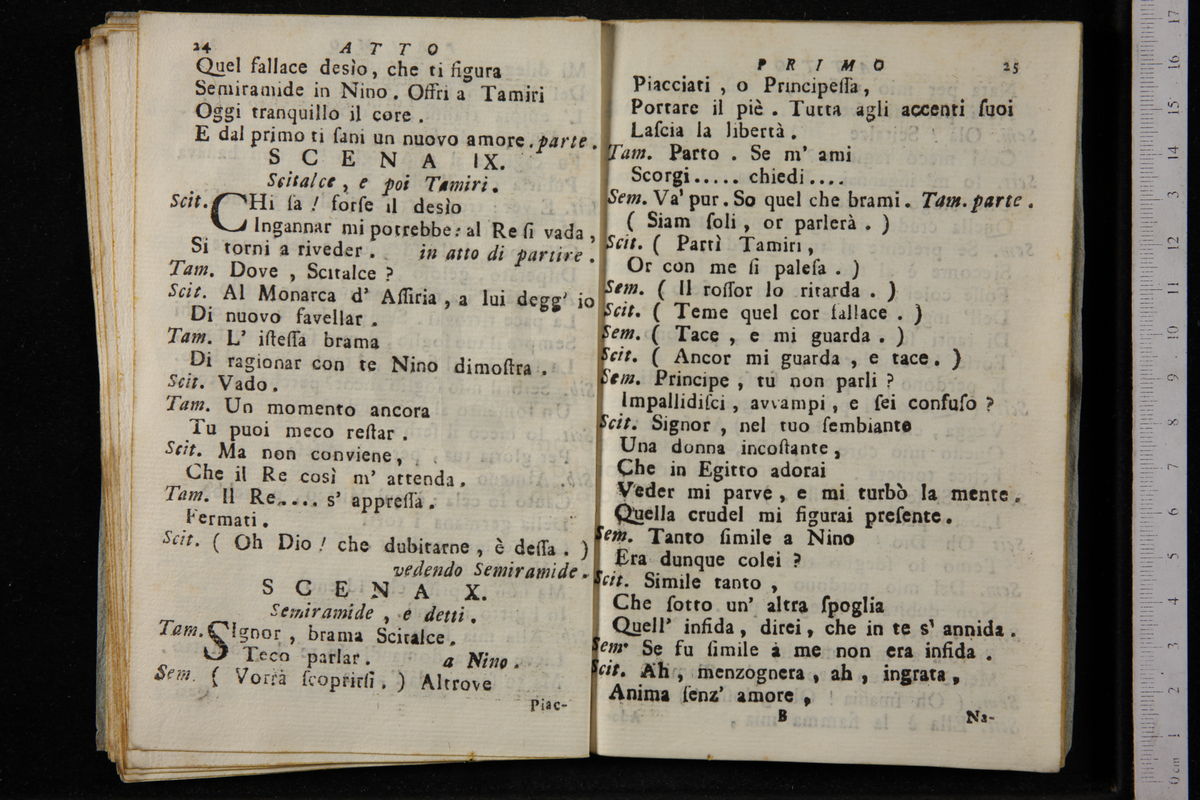 24 ATTO
Quel fallace desìo, che ti figura
Semiramide in Nino. Offri a Tamiri
Oggi tranquillo il core.
E dal primo ti ſani un nuovo amore. parte.
SCENA IX.
Scitalce, e poi Tamiri.
Scit. CHi ſa! forſe il desìo
Ingannar mi potrebbe: al Re ſi vada,
Si torni a riveder. in atto di partire.
Tam. Dove, Scitalce?
Scit. Al Monarca d' Aſſiria, a lui degg' io
Di nuovo favellar.
Tam. L' iſteſſa brama
Di ragionar con te Nino dimoſtra.
Scit. Vado.
Tam. Un momento ancora
Tu puoi meco reſtar.
Scit. Ma non conviene,
Che il Re così m' attenda.
Tam. Il Re..... s' appreſſa.
Fermati.
Scit. ( Oh Dio! che dubitarne, è deſſa. )
vedendo Semiramide.
SCENA X.
Semiramide, e detti.
Tam. SIgnor, brama Scitalce.
Teco parlar. a Nino.
Sem. ( Vorrà ſcoprirſi. ) Altrove
Piac-
PRIMO 25
Piacciati, o Principeſſa,
Portare il piè. Tutta agli accenti ſuoi
Laſcia la libertà.
Tam. Parto. Se m' ami
Scorgi..... chiedi....
Sem. Va' pur. So quel che brami. Tam. parte.
( Siam ſoli, or parlerà. )
Scit. ( Partì Tamiri,
Or con me ſi paleſa. )
Sem. ( Il roſſor lo ritarda. )
Scit. ( Teme quel cor fallace. )
Sem. ( Tace, e mi guarda. )
Scit. ( Ancor mi guarda, e tace. )
Sem. Principe, tu non parli?
Impallidiſci, avvampi, e ſei confuſo?
Scit. Signor, nel tuo ſembiante
Una donna incoſtante,
Che in Egitto adorai
Veder mi parve, e mi turbò la mente.
Quella crudel mi figurai preſente.
Sem. Tanto ſimile a Nino
Era dunque colei?
Scit. Simile tanto,
Che ſotto un' altra ſpoglia
Quell' infida, direi, che in te s' annida.
Sem. Se fu ſimile a me non era infida.
Scit. Ah, menzognera, ah, ingrata,
Anima ſenz' amore,
B Na-